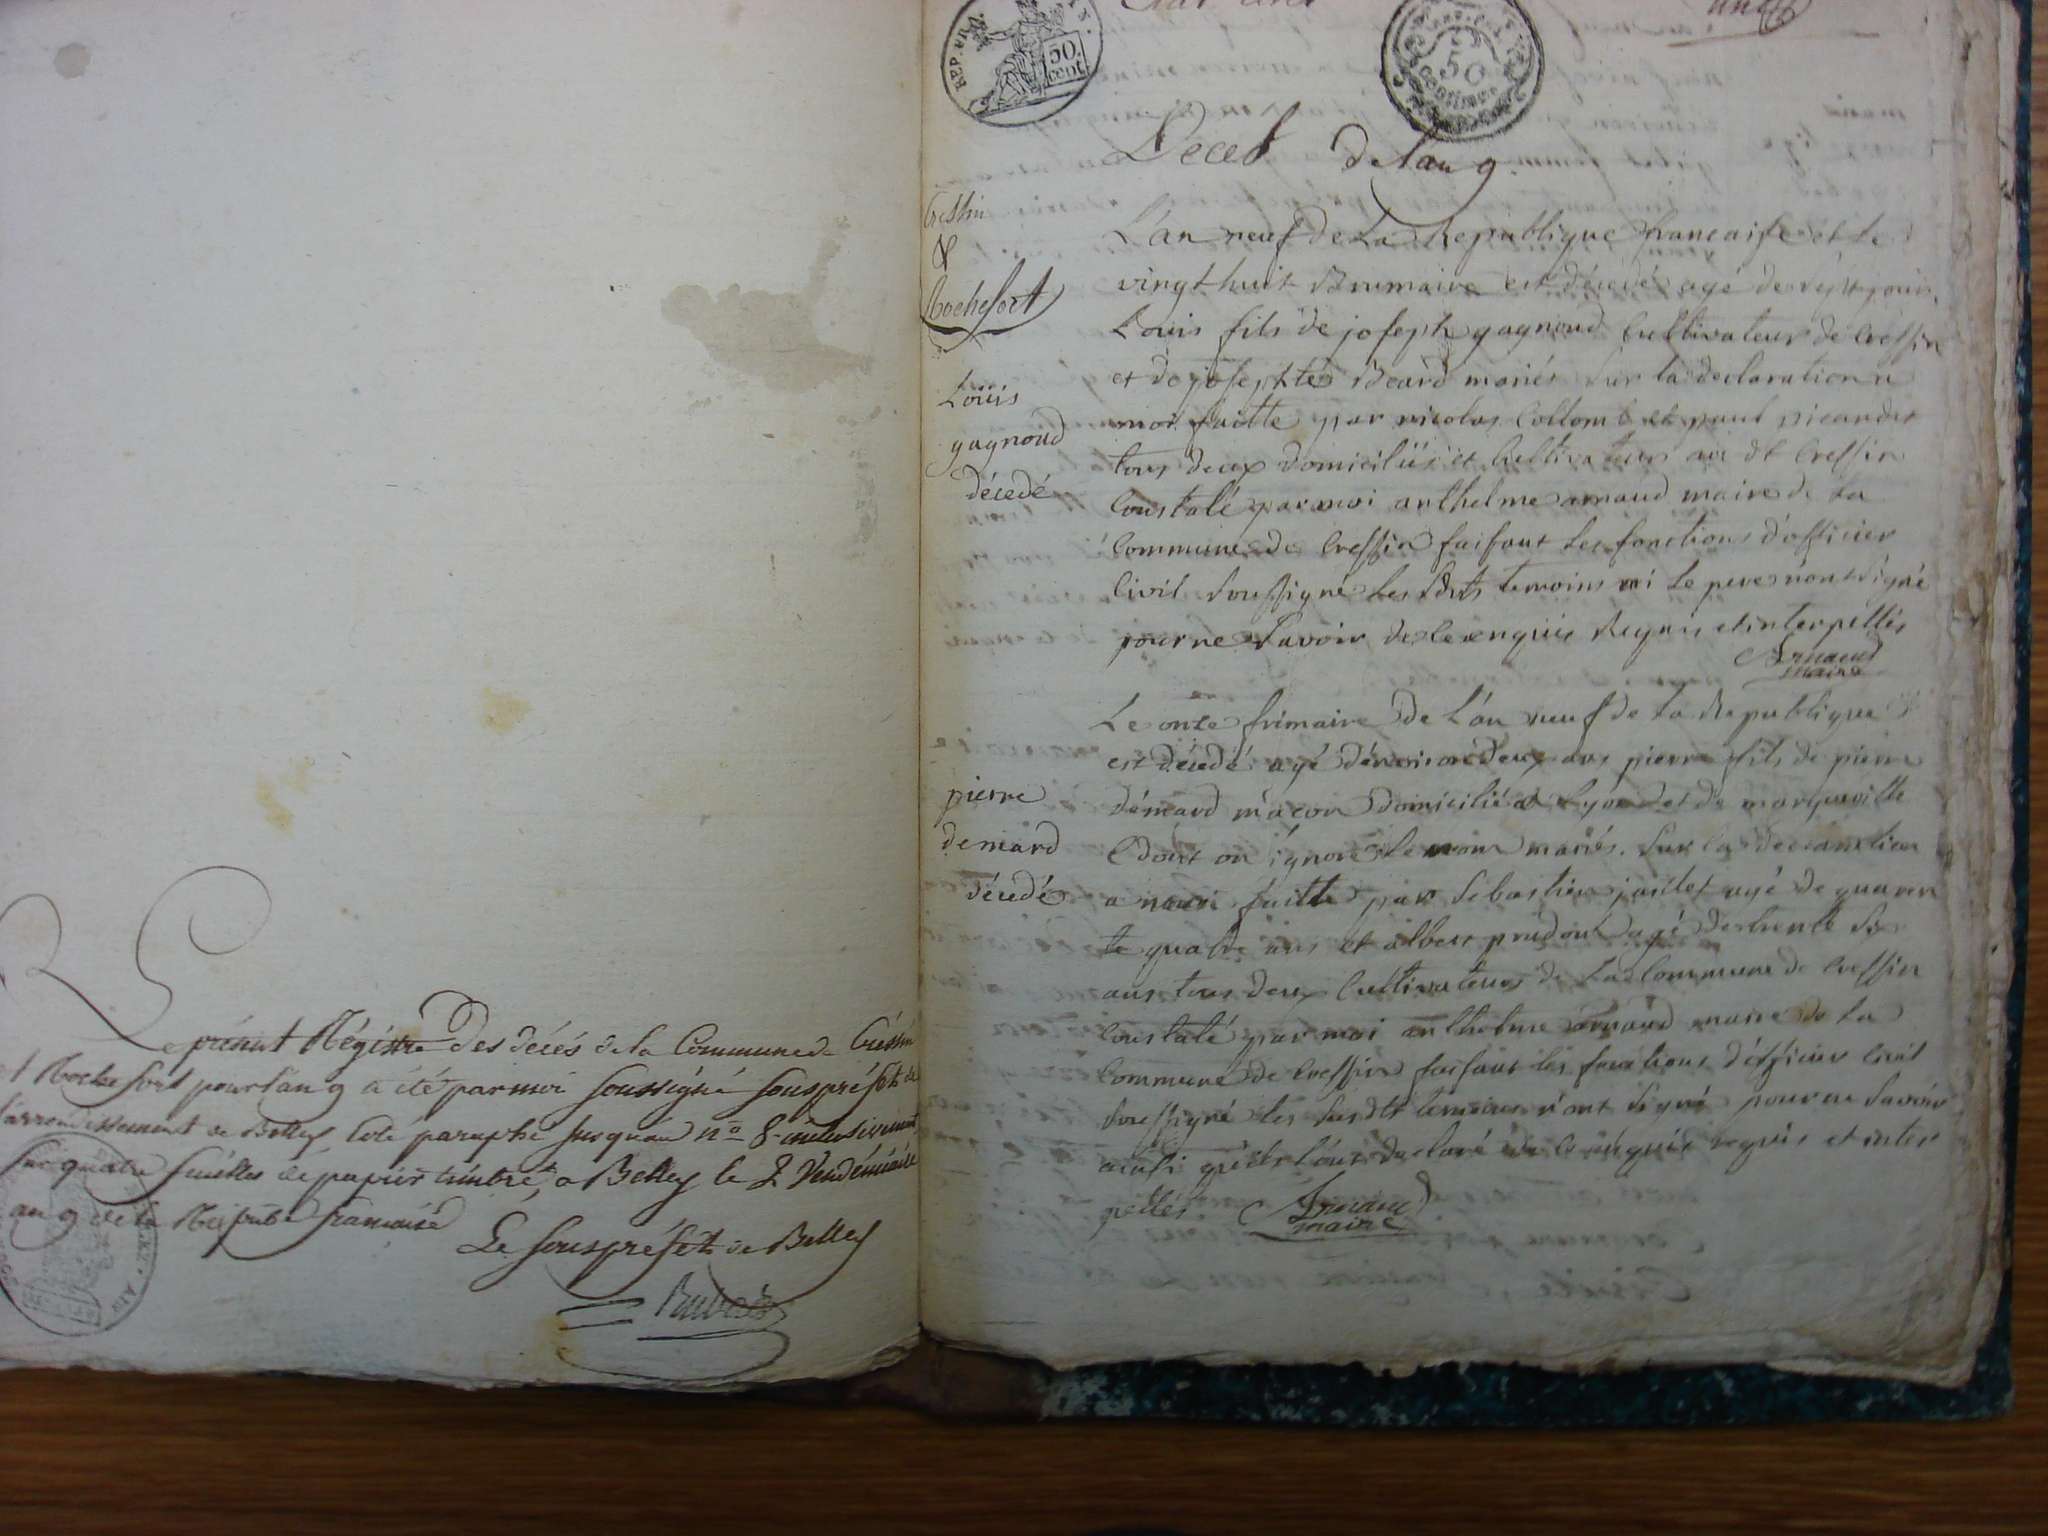 Le présent Régistre des décés de la Commune de Cressin
et Rochefort pour l'an 9 a été par moi soussigné souspréfet de
l'arrondissement de Belley Coté paraphé jusqu'au n.o 8 inclusivement
sur quatre feuilles de papier timbré, a Belley le 2 Vendémiaire
an 9 de la Repub.e francaise
Le souspréfet de Belley
REP. FRA.
50.
cent.
50
centimes
Deces de lan 9.
Cressin
&
Rochefort
L'an neuf de La Republique francaise et le
vingt huit Brumaire est décedé agé de sept jours
Louis fils de joseph gagnoud Cultivateur de Cressin
et de josephte Beard mariés sur la declaration a
moi faitte par nicolas Collomb et paul picandet
tous deux domiciliés et Cultivateurs au dt Cressin
Constaté par moi anthelme arnaud maire de la
Commune de Cressin faisant les fonctions d'officier
Civil soussigné les sdts temoins ni le pere n'ont signé
pour ne savoir de ce enquis Requis et interpellés
Arnaud
maire
Louis
gagnoud
décedé
Le onze frimaire de L'an neuf de la Republique
est décedé agé d'environ deux ans pierre fils de pierre
démard maçon domicilié a Lyon et de margueritte
dont on ignore le nom mariés. Sur la declaration
a moi faitte par Sebastien jaillet agé de quaren
te quatre ans et albert prudon agé de trente six
ans tous deux Cultivateurs de La Commune de Cressin
Constaté par moi anthelme arnaud maire de la
Commune de Cressin faisant les fonctions d'officier Civil
soussigné les susdts temoins n'ont signé pour ne savoir
ainsi qu'ils l'ont declaré de ce enquis requis et inter
pellés
Arnaud
maire
pierre
demard
décedé